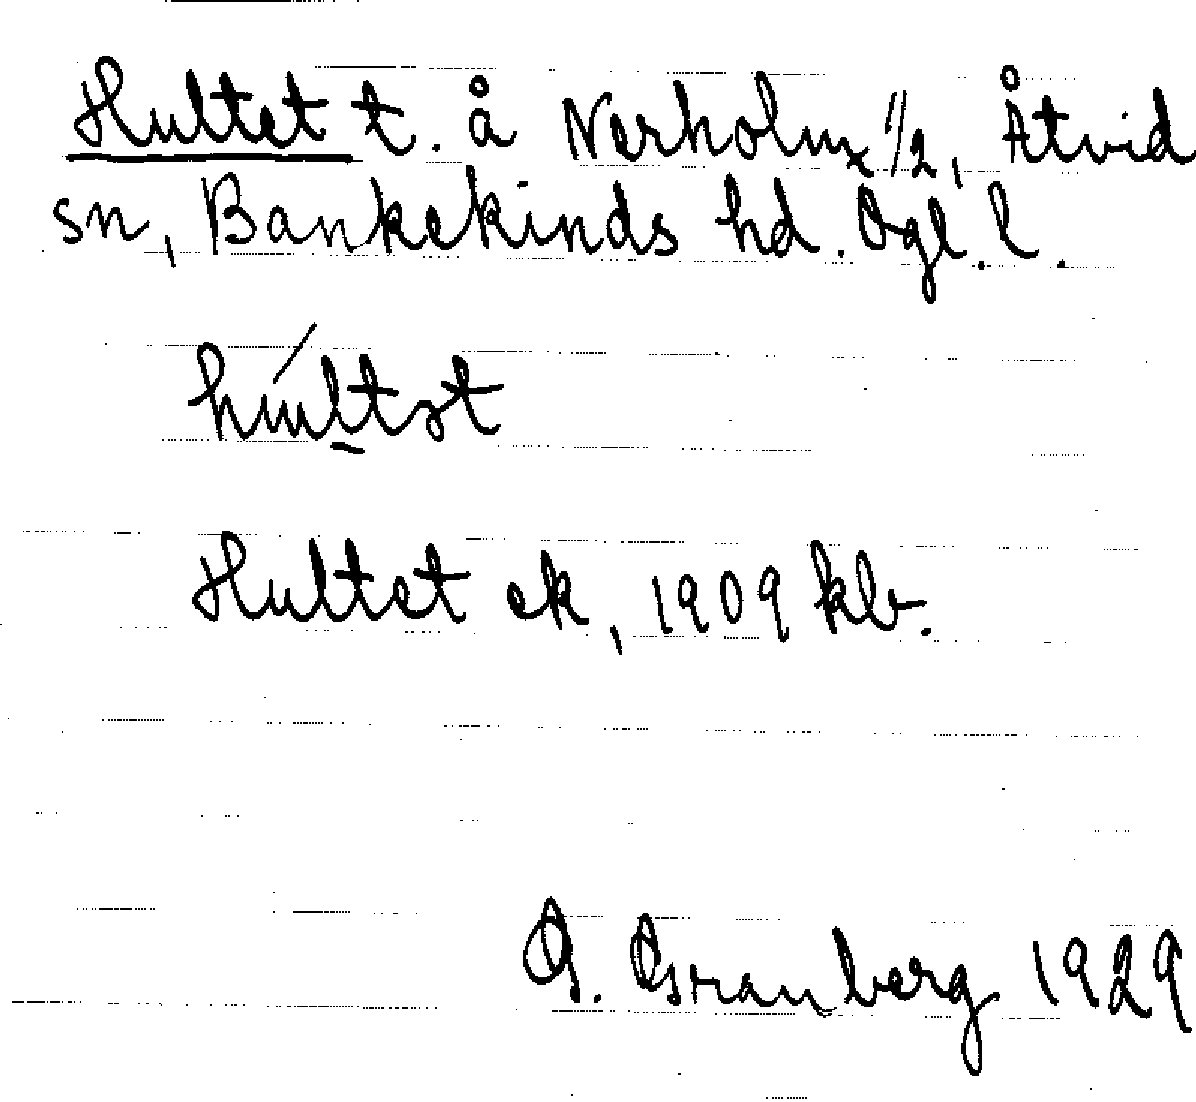 Hultet t. å Nerholm x 1/2, Åtvid
sn, Bankekinds hd. Ögl. l.
Hultet ek, 1909 kb.
G. Granberg 1929